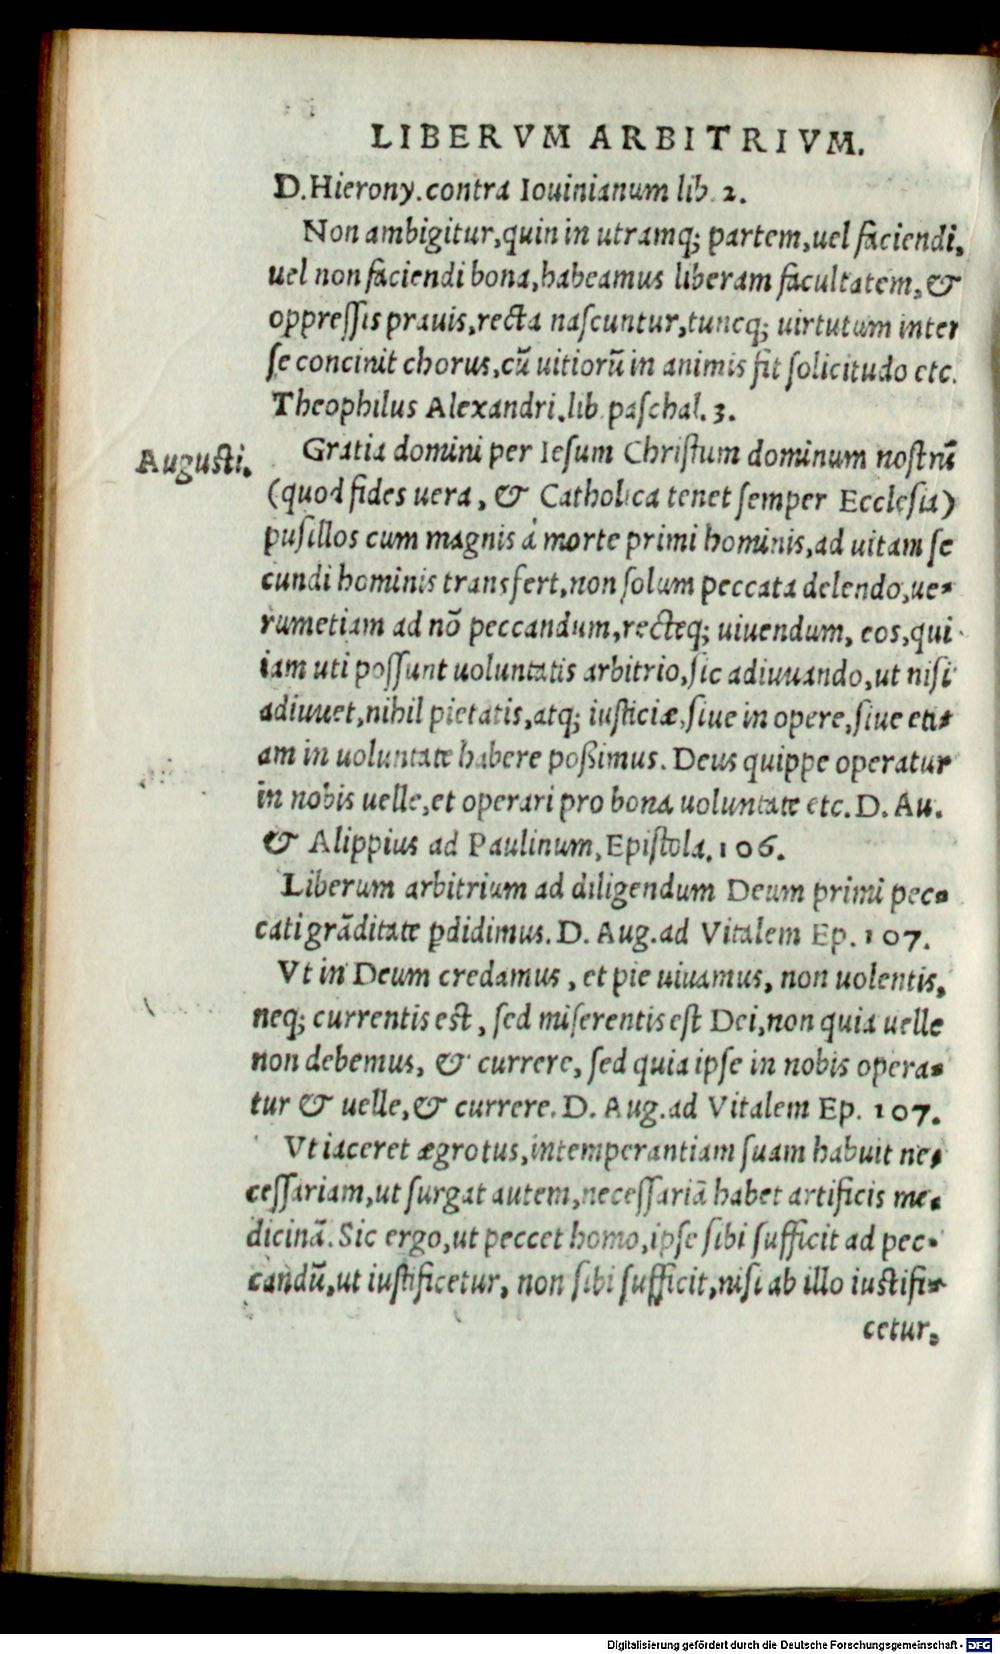 LIBERVM ARBITRIVM.
D. Hierony. contra Iouinianum lib. 2.
Non ambigitur, quin in utramq; partem, uel faciendi,
uel non faciendi bona, habeamus liberam facultatem, &
oppreſſis prauis, recta naſcuntur, tuncq; uirtutum inter
ſe concinit chorus, cū uitiorū in animis fit ſolicitudo etc.
Theophilus Alexandri. lib. paſchal. 3.
Auguſti.
Gratia domini per Ieſum Chriſtum dominum noſtrū
(quod fides uera, & Catholica tenet ſemper Eccleſia)
puſillos cum magnis à morte primi hominis, ad uitam ſe
cundi hominis transfert, non ſolum peccata delendo, ue-
rumetiam ad nō peccandum, recteq; uiuendum, eos, qui
iam uti poſſunt uoluntatis arbitrio, ſic adiuuando, ut niſi
adiuuet, nihil pietatis, atq; iuſticiæ, ſiue in opere, ſiue eti-
am in uoluntate habere poßimus. Deus quippe operatur
in nobis uelle, et operari pro bona uoluntate etc. D. Au.
& Alippius ad Paulinum, Epiſtola. 106.
Liberum arbitrium ad diligendum Deum primi pec-
cati grāditate ꝑdidimus. D. Aug. ad Vitalem Ep. 107.
Vt in Deum credamus, et pie uiuamus, non uolentis,
neq; currentis eſt, ſed miſerentis eſt Dei, non quia uelle
non debemus, & currere, ſed quia ipſe in nobis opera-
tur & uelle, & currere. D. Aug. ad Vitalem Ep. 107.
Vt iaceret ægrotus, intemperantiam ſuam habuit ne-
ceſſariam, ut ſurgat autem, neceſſariā habet artificis me-
dicinā. Sic ergo, ut peccet homo, ipſe ſibi ſufficit ad pec-
candū, ut iuſtificetur, non ſibi ſufficit, niſi ab illo iuſtifi-
cetur.
Digitalisierung gefördert durch die Deutsche Forschungsgemeinschaft - DFG